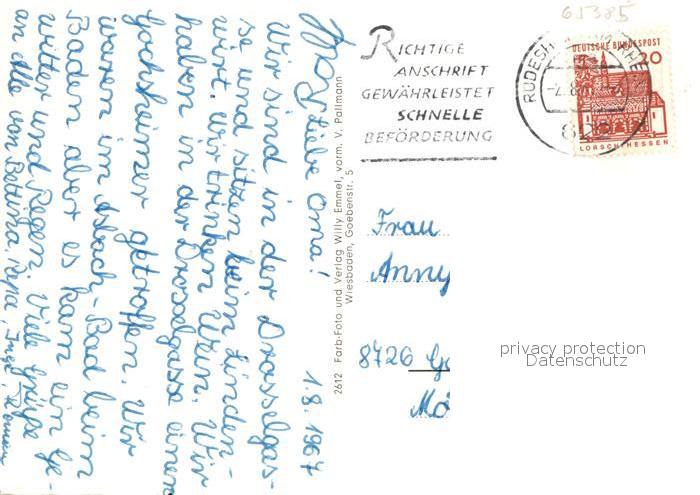 65385
RICHTIGE
ANSCHRIFT
GEWÄHRLEISTET
SCHNELLE
BEFÖRDERUNG
RÜDESH
DEUTSCHE BUNDESPOST
20
LORSCH/HESSEN
1.8.1967
Liebe Oma!
Wir sind in der Drosselgas-
se und sitzen beim Linden-
wirt. Wir trinken Wein. Wir
haben in der Drosselgasse einen
Hochheimer getroffen. Wir
waren im Asbach-Bad beim
Baden aber es kam ein Ge-
witter und Regen. Viele Grüße
an alle von Bettina, Papa, Inge, Roman
2612 Farb-Foto und Verlag Willy Emmel, vorm. V. Pallmann
Wiesbaden, Goebenstr. 5
Frau
Anny
8726
privacy protection
Datenschutz